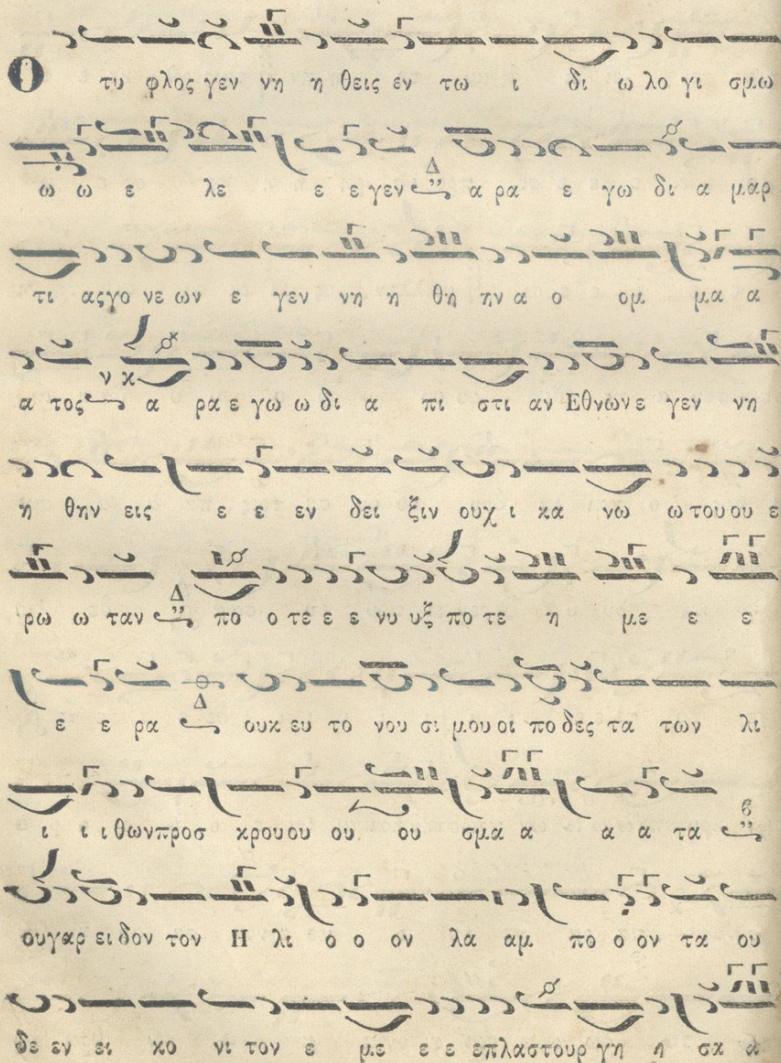 Ο τυ φλος γεν νη η θεις εν τω ι δι ω λο γι σμω
ω ω ε λε ε ε γεν Δ α ρα ε γω δι α μαρ
τι ας γο νε ων ε γεν νη η θη ην α ο ομ μα α
α τος ν κ α ρα ε γω ω δι α πι στι αν Εθνων ε γεν νη
η θην εις ε ε εν δει ξιν ουχ ι κα νω ω του ου ε
ρω ω ταν Δ πο ο τε ε ε νυ υξ πο τε η με ε ε
ε ε ρα Δ ουκ ευ το νου σι μου οι πο δες τα των λι
ι ι ι θων προσ κρου ου ου ου σμα α α α τα 6
ου γαρ ει δον τον Η λι ο ο ον λα αμ πο ο ον τα ου
δε εν ει κο νι τον ε με ε ε ε πλαστουρ γη η σα α